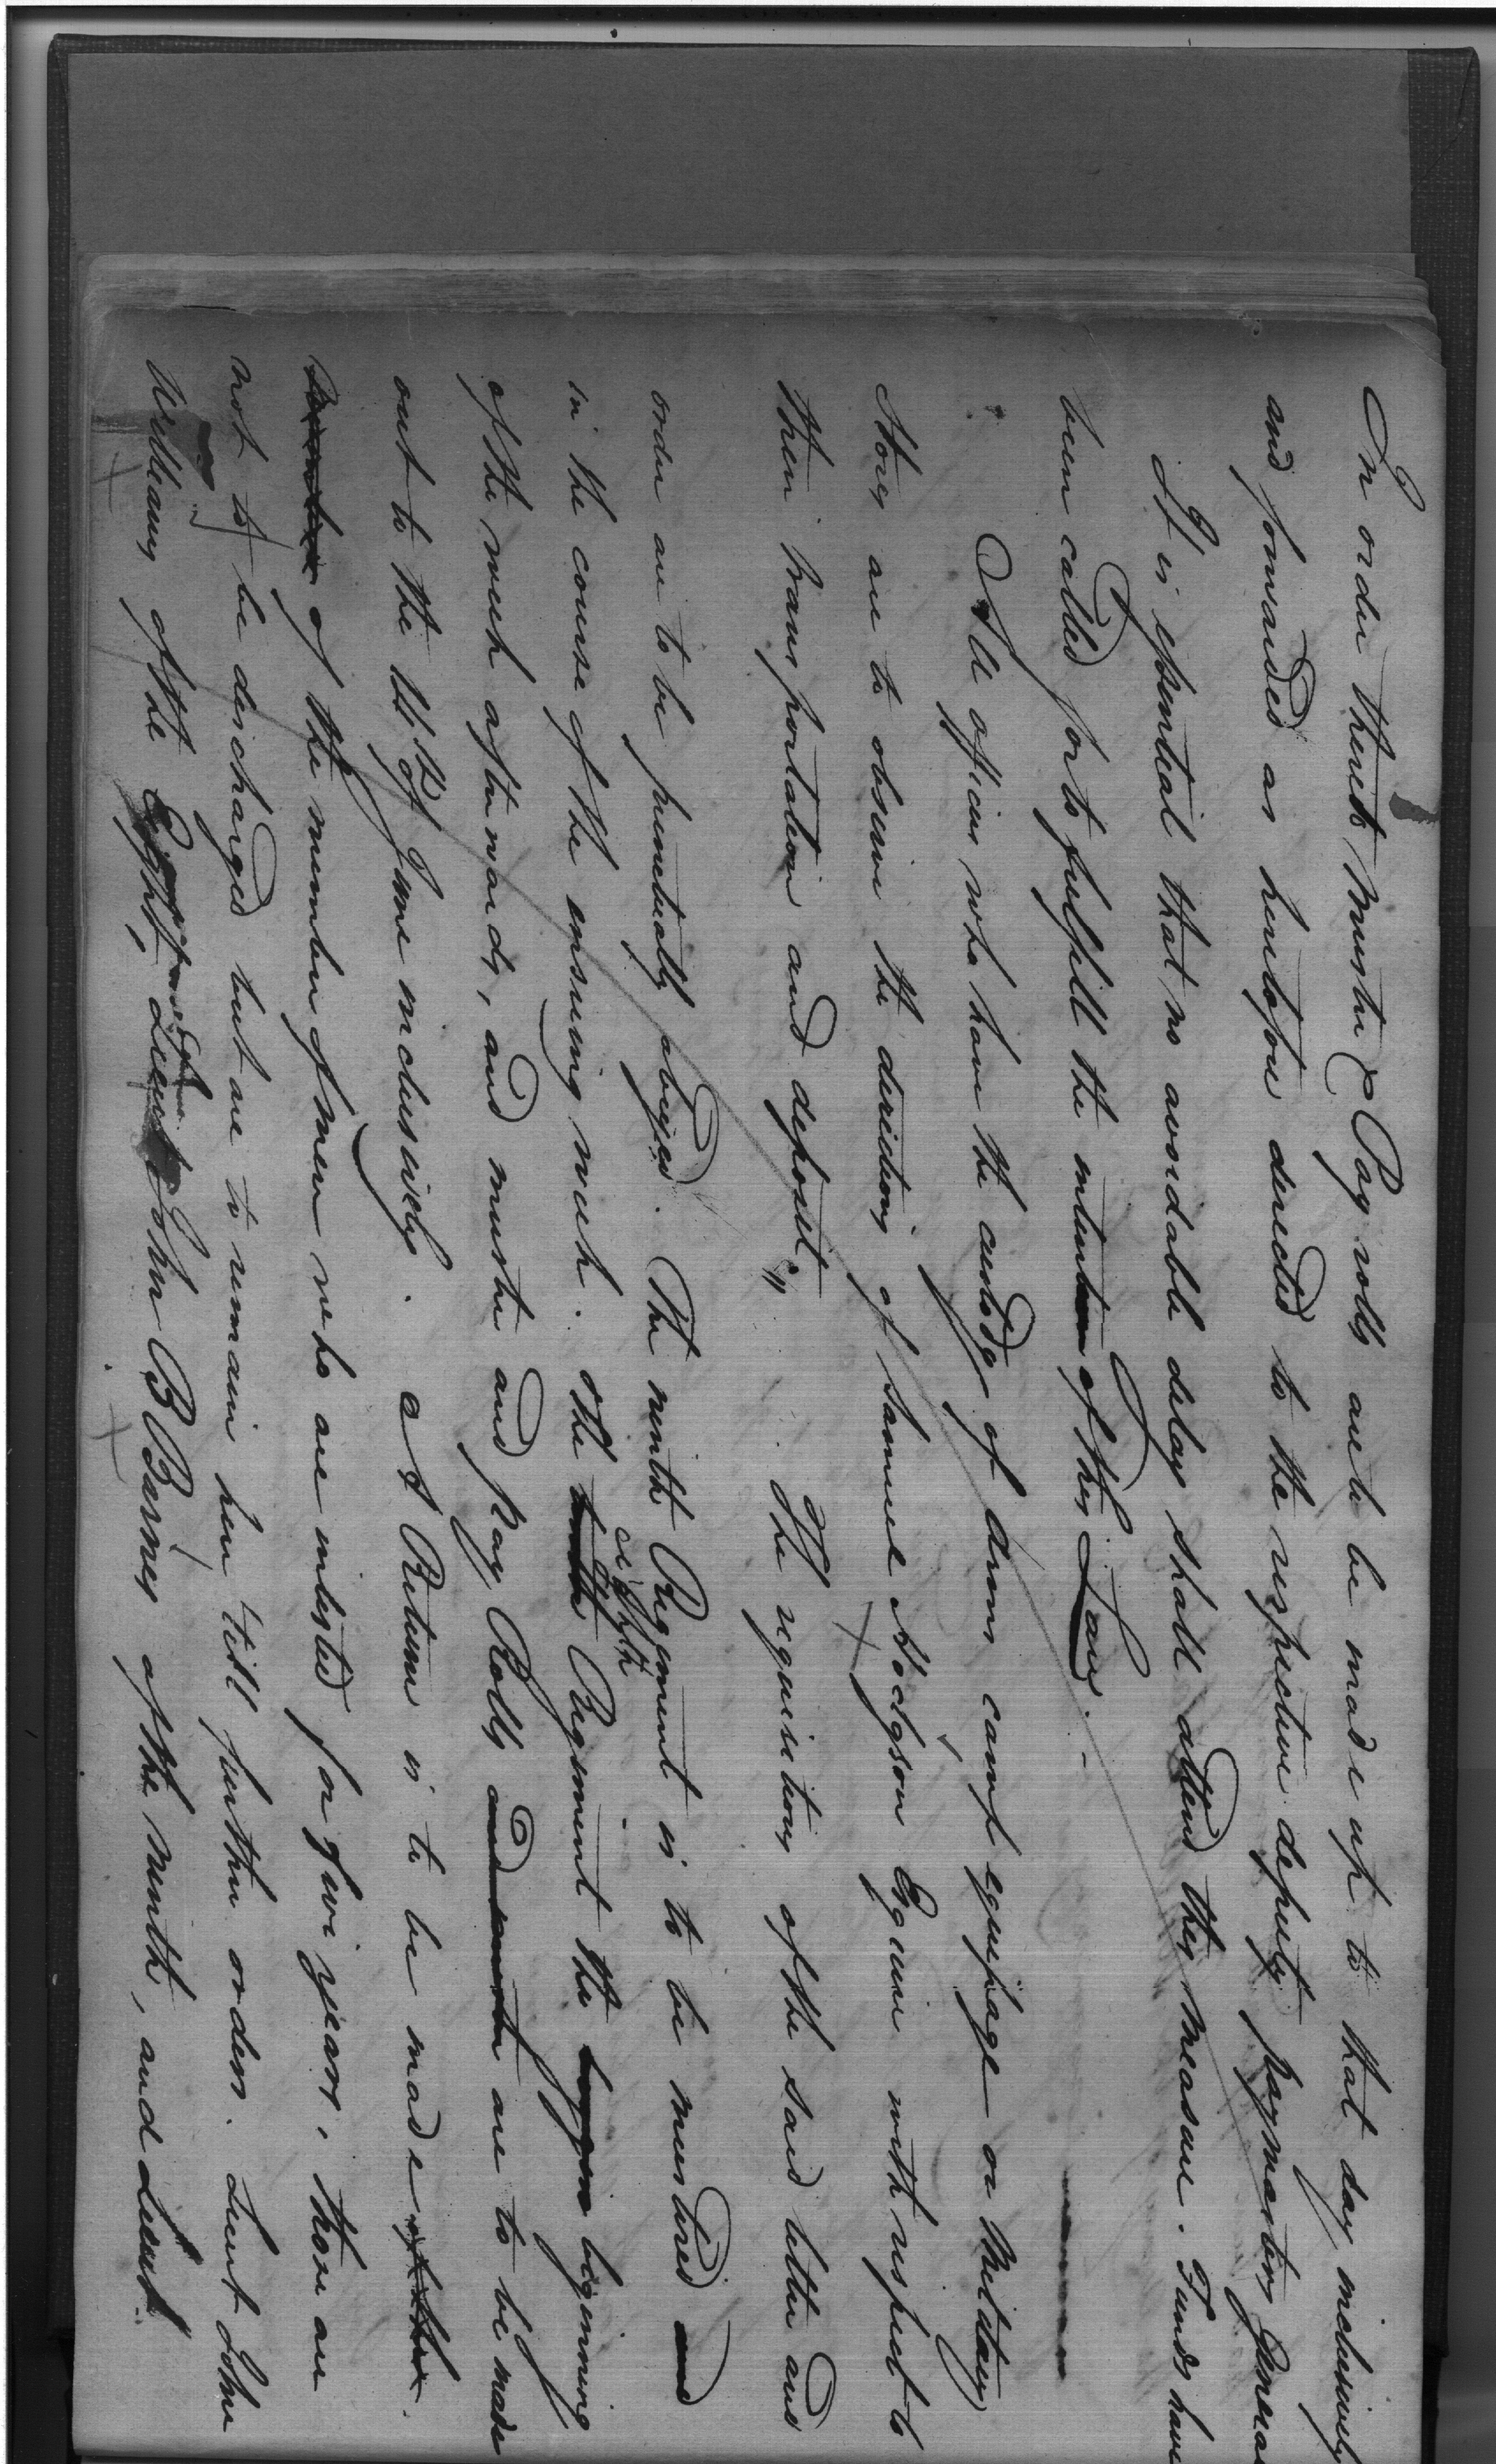 In order thereto Muster & Pay rolls are to be made up to that day inclusively
and forwarded as heretofore directed to the respective deputy paymasters General
It is essential that no avoidable delay shall attend this measure. Funds have
been called for to fulfill the intention of this Law. -
All officers who have the custody of arms camp equipage or Military
Stores are to observe the directions of Samuel Hodgson Esquire with respect to
their transportation and deposit."
The requisitions of the said letter and
order are to be punctually obeyed. The ninth Regiment is to be mustered and
in the course of the ensuing week. The eighth Regiment the beginning
of the week afterwards, and muster and pay Rolls are to be made
out to the 14th of June inclusively. A Return is to be made
of the number of men who are inlisted for five years, those are
not to be discharged but are to remain here till further orders. Lieut John
Williams of the Eight, Lieut John B Barnes of the ninth, and Lieut